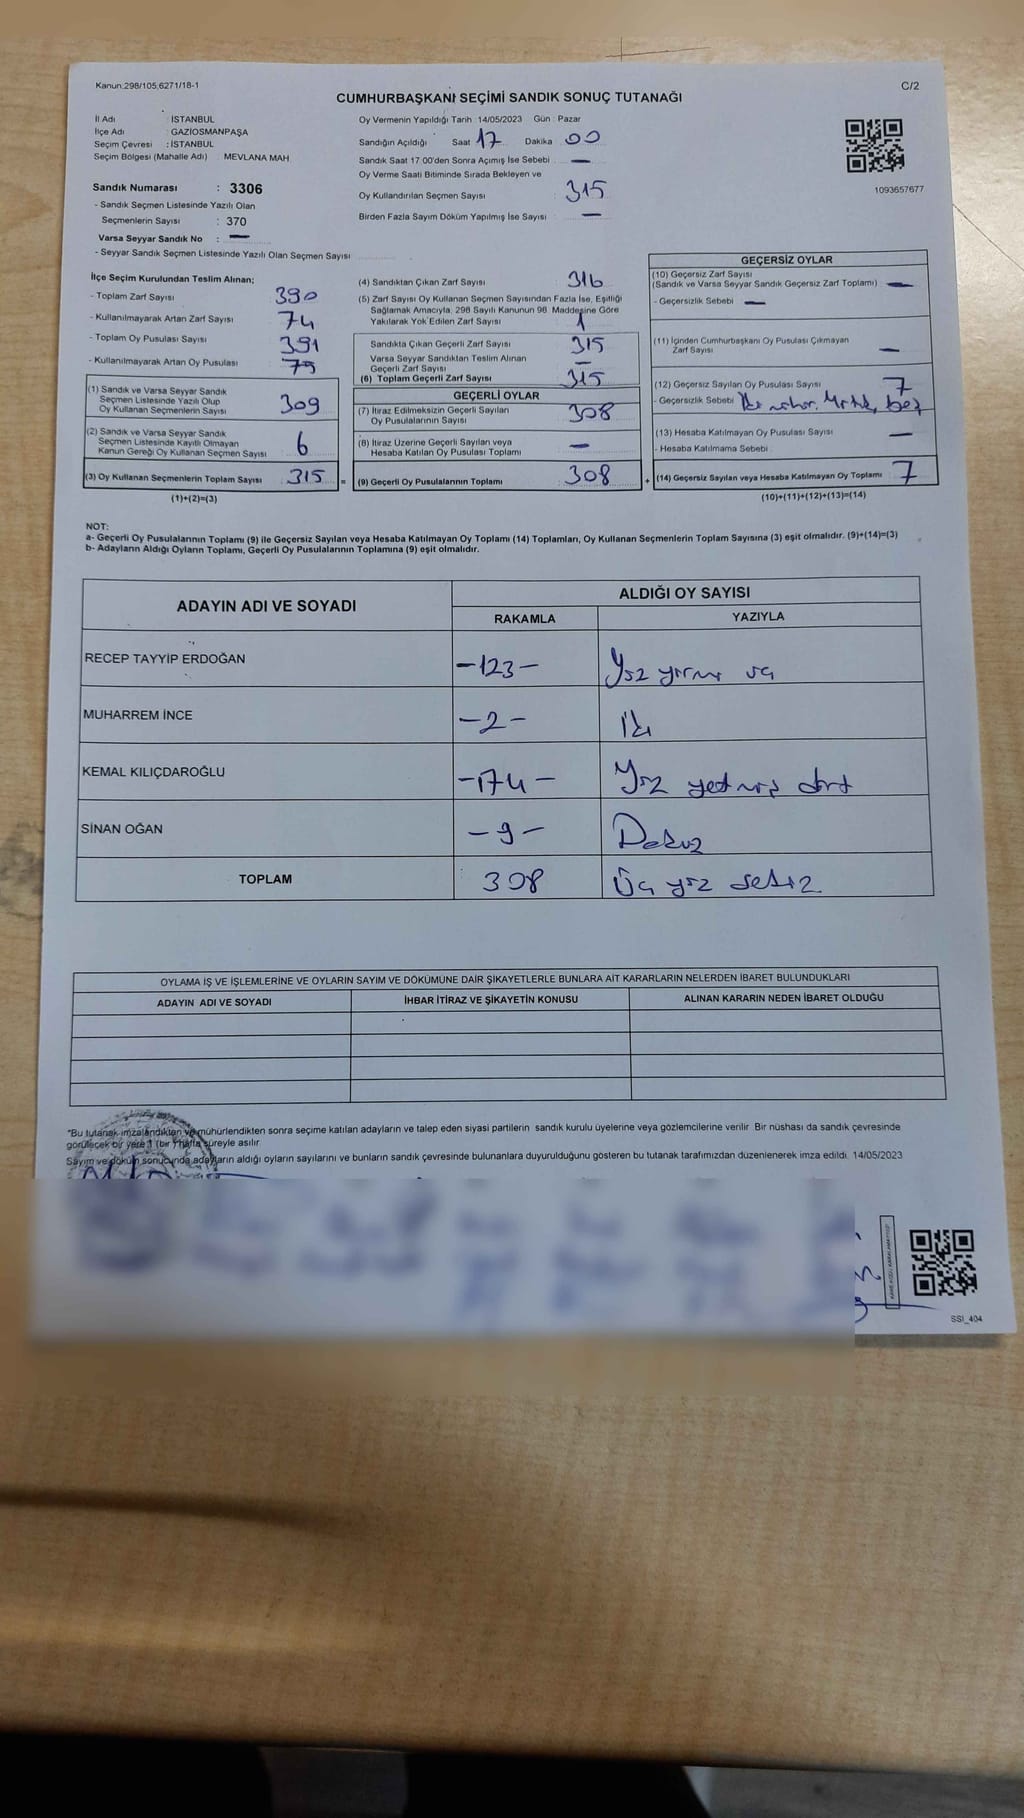 Kanun:298/105,6271/18-1
C/2
CUMHURBAŞKANI SEÇİMİ SANDIK SONUÇ TUTANAĞI
İl Adı : İSTANBUL
İlçe Adı : GAZİOSMANPAŞA
Seçim Çevresi : İSTANBUL
Seçim Bölgesi (Mahalle Adı) : MEVLANA MAH.
Sandık Numarası : 3306
- Sandık Seçmen Listesinde Yazılı Olan
Seçmenlerin Sayısı : 370
Varsa Seyyar Sandık No : —
- Seyyar Sandık Seçmen Listesinde Yazılı Olan Seçmen Sayısı
Oy Vermenin Yapıldığı Tarih : 14/05/2023 Gün : Pazar
Sandığın Açıldığı Saat 17 Dakika 00
Sandık Saat 17:00'den Sonra Açımış İse Sebebi —
Oy Verme Saati Bitiminde Sırada Bekleyen ve
Oy Kullandırılan Seçmen Sayısı : 315
Birden Fazla Sayım Döküm Yapılmış İse Sayısı —
1093657677
İlçe Seçim Kurulundan Teslim Alınan;
- Toplam Zarf Sayısı 390
- Kullanılmayarak Artan Zarf Sayısı 74
- Toplam Oy Pusulası Sayısı 391
- Kullanılmayarak Artan Oy Pusulası 75
(1) Sandık ve Varsa Seyyar Sandık
Seçmen Listesinde Yazılı Olup
Oy Kullanan Seçmenlerin Sayısı 309
(2) Sandık ve Varsa Seyyar Sandık
Seçmen Listesinde Kayıtlı Olmayan
Kanun Gereği Oy Kullanan Seçmen Sayısı 6
(3) Oy Kullanan Seçmenlerin Toplam Sayısı 315 =
(1)+(2)=(3)
(4) Sandıktan Çıkan Zarf Sayısı 316
(5) Zarf Sayısı Oy Kullanan Seçmen Sayısından Fazla İse, Eşitliği
Sağlamak Amacıyla, 298 Sayılı Kanunun 98. Maddesine Göre
Yakılarak Yok Edilen Zarf Sayısı 1
Sandıkta Çıkan Geçerli Zarf Sayısı 315
Varsa Seyyar Sandıktan Teslim Alınan
Geçerli Zarf Sayısı —
(6) Toplam Geçerli Zarf Sayısı 315
GEÇERLİ OYLAR
(7) İtiraz Edilmeksizin Geçerli Sayılan
Oy Pusulalarının Sayısı 308
(8) İtiraz Üzerine Geçerli Sayılan veya
Hesaba Katılan Oy Pusulası Toplamı —
(9) Geçerli Oy Pusulalarının Toplamı 308 +
GEÇERSİZ OYLAR
(10) Geçersiz Zarf Sayısı
(Sandık ve Varsa Seyyar Sandık Geçersiz Zarf Toplamı) —
- Geçersizlik Sebebi —
(11) İçinden Cumhurbaşkanı Oy Pusulası Çıkmayan
Zarf Sayısı —
(12) Geçersiz Sayılan Oy Pusulası Sayısı 7
- Geçersizlik Sebebi
(13) Hesaba Katılmayan Oy Pusulası Sayısı —
- Hesaba Katılmama Sebebi
(14) Geçersiz Sayılan veya Hesaba Katılmayan Oy Toplamı 7
(10)+(11)+(12)+(13)=(14)
NOT:
a- Geçerli Oy Pusulalarının Toplamı (9) ile Geçersiz Sayılan veya Hesaba Katılmayan Oy Toplamı (14) Toplamları, Oy Kullanan Seçmenlerin Toplam Sayısına (3) eşit olmalıdır. (9)+(14)=(3)
b- Adayların Aldığı Oyların Toplamı, Geçerli Oy Pusulalarının Toplamına (9) eşit olmalıdır.
ADAYIN ADI VE SOYADI
ALDIĞI OY SAYISI
RAKAMLA YAZIYLA
RECEP TAYYİP ERDOĞAN -123- Yüz yirmi üç
MUHARREM İNCE -2- İki
KEMAL KILIÇDAROĞLU -174- Yüz yetmiş dört
SİNAN OĞAN -9- Dokuz
TOPLAM 308 Üç yüz sekiz
OYLAMA İŞ VE İŞLEMLERİNE VE OYLARIN SAYIM VE DÖKÜMÜNE DAİR ŞİKAYETLERLE BUNLARA AİT KARARLARIN NELERDEN İBARET BULUNDUKLARI
ADAYIN ADI VE SOYADI İHBAR İTİRAZ VE ŞİKAYETİN KONUSU ALINAN KARARIN NEDEN İBARET OLDUĞU
*Bu tutanak imzalandıktan ve mühürlendikten sonra seçime katılan adayların ve talep eden siyasi partilerin sandık kurulu üyelerine veya gözlemcilerine verilir. Bir nüshası da sandık çevresinde
görülecek bir yere 1 (bir) hafta süreyle asılır.
Sayım ve döküm sonucunda adayların aldığı oyların sayılarını ve bunların sandık çevresinde bulunanlara duyurulduğunu gösteren bu tutanak tarafımızdan düzenlenerek imza edildi. 14/05/2023
SSI_404